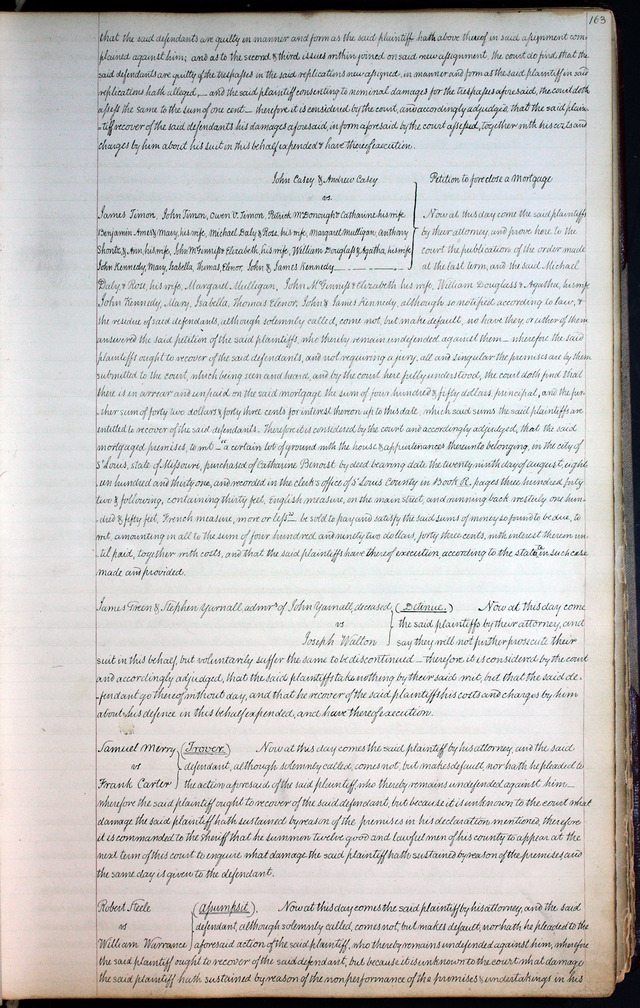 163
that the said defendants are guilty in manner and form as the said plaintiff hath above thereof in said assignment com-
plained against him; and as to the second & third issues within joined on said new assignment, the court do find that the
said defendants are guilty of the trespasses in the said replications new assigned, in manner and form as the said plaintiff in said
replications hath alleged, — and the said plaintiff consenting to nominal damages for the trespasses aforesaid, the court doth
assess the same to the sum of one cent — therefore it is considered by the court, and accordingly adjudged, that the said plain-
-tiff recover of the said defendants his damages aforesaid, in form aforesaid by the court assessed, together with his costs and
charges by him about his suit in this behalf expended & have thereof execution.
John Casey & Andrew Casey Petition to foreclose a Mortgage
vs
James Timon, John Timon, Owen V. Timon, Patrick McDonough & Catharine his wife Now at this day come the said plaintiffs
Benjamin Ames & Mary, his wife, Michael Daly & Rose, his wife, Margaret Mulligan, Anthony by their attorney, and prove here to the
Shontz & Ann, his wife, John McGinnis & Elizabeth, his wife, William Douglass & Agatha, his wife court the publication of the order made
John Kennedy, Mary, Isabella, Thomas, Elenor, John & James Kennedy at the last term, and the said Michael
Daly & Rose, his wife, Margaret Mulligan, John McGinnis & Elizabeth his wife, William Douglass & Agatha, his wife
John Kennedy, Mary, Isabella, Thomas Elenor, John & James Kennedy, although so notified according to law, &
the residue of said defendants, although solemnly called, come not, but make default, no have they, or either of them
answered the said petition of the said plaintiffs, who thereby remain undefended against them — wherefore the said
plaintiffs ought to recover of the said defendants, and not requiring a jury, all and singular the premises are by them
submitted to the court, which being seen and heard, and by the court here fully understood, the court doth find that
there is in arrear and unpaid on the said mortgage the sum of four hundred & fifty dollars principal, and the fur-
ther sum of forty two dollars & forty three cents for interest thereon up to this date, which said sums the said plaintiffs are
entitled to recover of the said defendants. Therefore it is considered by the court and accordingly adjudged, that the said
mortgaged premises, to wit — "a certain lot of ground with the house & appurtenances thereunto belonging, in the city of
St Louis, state of Missouri, purchased of Catharine Benoist by deed bearing date the twenty ninth day of august, eight-
een hundred and thirty one, and recorded in the clerk's office of St Louis County in Book R, pages three hundred forty
two & following, containing thirty feet, English measure, on the main street, and running back westerly one hun-
dred & fifty feet, French measure, more or less" be sold to pay and satisfy the said sums of money so found to be due, to
wit, amounting in all to the sum of four hundred and ninety two dollars, forty three cents, with interest thereon un-
til paid, together with costs, and that the said plaintiffs have thereof execution, according to the statute in such case
made and provided.
James Green & Stephen Yarnall, admrs of John Yarnall, deceased (Detinue.) Now at this day come
vs the said plaintiffs by their attorney, and
Joseph Walton say they will not further prosecute their
suit in this behalf, but voluntarily suffer the same to be discontinued — therefore it is considered by the court
and accordingly adjudged, that the said plaintiffs take nothing by their said writ, but that the said de-
-fendant go thereof without day, and that he recover of the said plaintiffs his costs and charges by him
about his defence in this behalf expended, and have thereof execution.
Samuel Merry (Trover) Now at this day comes the said plaintiff by his attorney, and the said
vs defendant, although solemnly called, comes not, but makes default, nor hath he pleaded to
Frank Carter the action aforesaid of the said plaintiff, who thereby remains undefended against him —
wherefore the said plaintiff ought to recover of the said defendant, but because it is unknown to the court what
damage the said plaintiff hath sustained by reason of the premises in his declaration mentioned, therefore
it is commanded to the Sheriff that he summon twelve good and lawful men of his county to appear at the
next term of this court to enquire what damage the said plaintiff hath sustained by reason of the premises and
the same day is given to the defendant.
Robert Steele (assumpsit). Now at this day comes the said plaintiff by his attorney, and the said
vs defendant, although solemnly called, comes not, but makes default, nor hath he pleaded to the
William Warrance aforesaid action of the said plaintiff, who thereby remains undefended against him, wherefore
the said plaintiff ought to recover of the said defendant, but because it is unknown to the court what damage
the said plaintiff hath sustained by reason of the nonperformance of the premises & undertakings in his